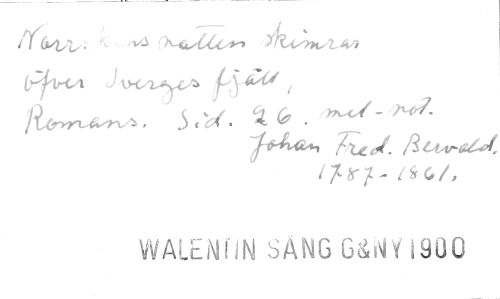 Norrskensnatten skimrar
öfver Sverges fjäll,
Romans. Sid. 26. mel-not.
Johan Fred. Berwald.
1787-1861.
WALENTIN SÅNG G&NY 1900